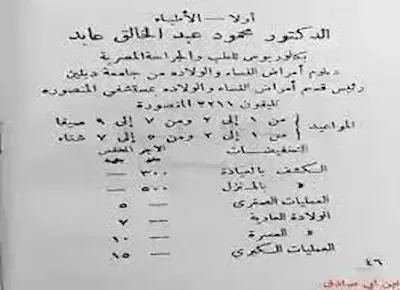 أولا — الأطباء
الدكتور محمود عبد الخالق عابد
بكالوريوس الطب والجراحة المصرية
دبلوم أمراض النساء والولاده من جامعة دبلين
رئيس قسم أمراض النساء والولاده بمستشفى المنصوره
تليفون ٢٢١١ المنصورة
المواعيد { من ١ إلى ٢ ومن ٧ إلى ٩ صيفا
من ١ إلى ٢ ومن ٥ إلى ٧ شتاء
التخفيضات الأجر المخفض
الكشف بالعيادة ٣٠٠ —
» بالمنزل ٥٠٠ —
العمليات الصغرى — ٥
الولادة العادية — ٧
» العسرة — ١٠
العمليات الكبرى — ١٥
٤٦
ابن أبي صادق